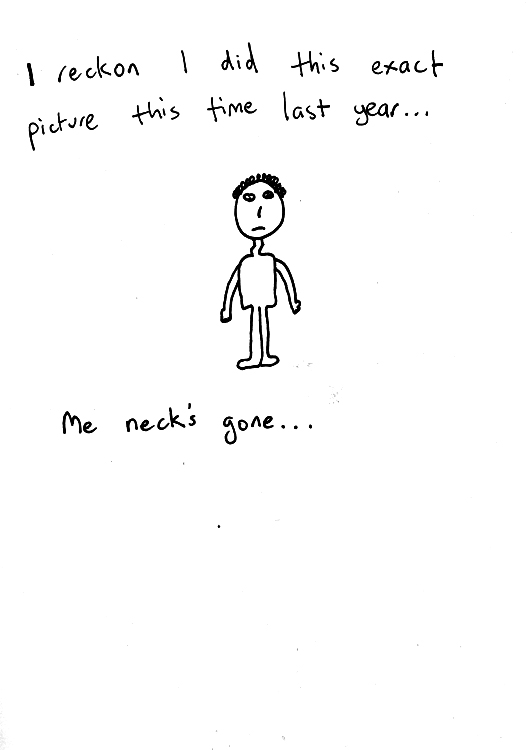 I reckon I did this exact
picture this time last year...
Me neck's gone...